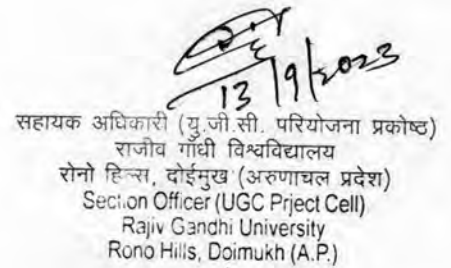 13/9/2023
सहायक अधिकारी (यु.जी.सी. परियोजना प्रकोष्ठ)
राजीव गाँधी विश्वविद्यालय
रोनो हिल्स, दोईमुख (अरुणाचल प्रदेश)
Section Officer (UGC Prject Cell)
Rajiv Gandhi University
Rono Hills, Doimukh (A.P.)